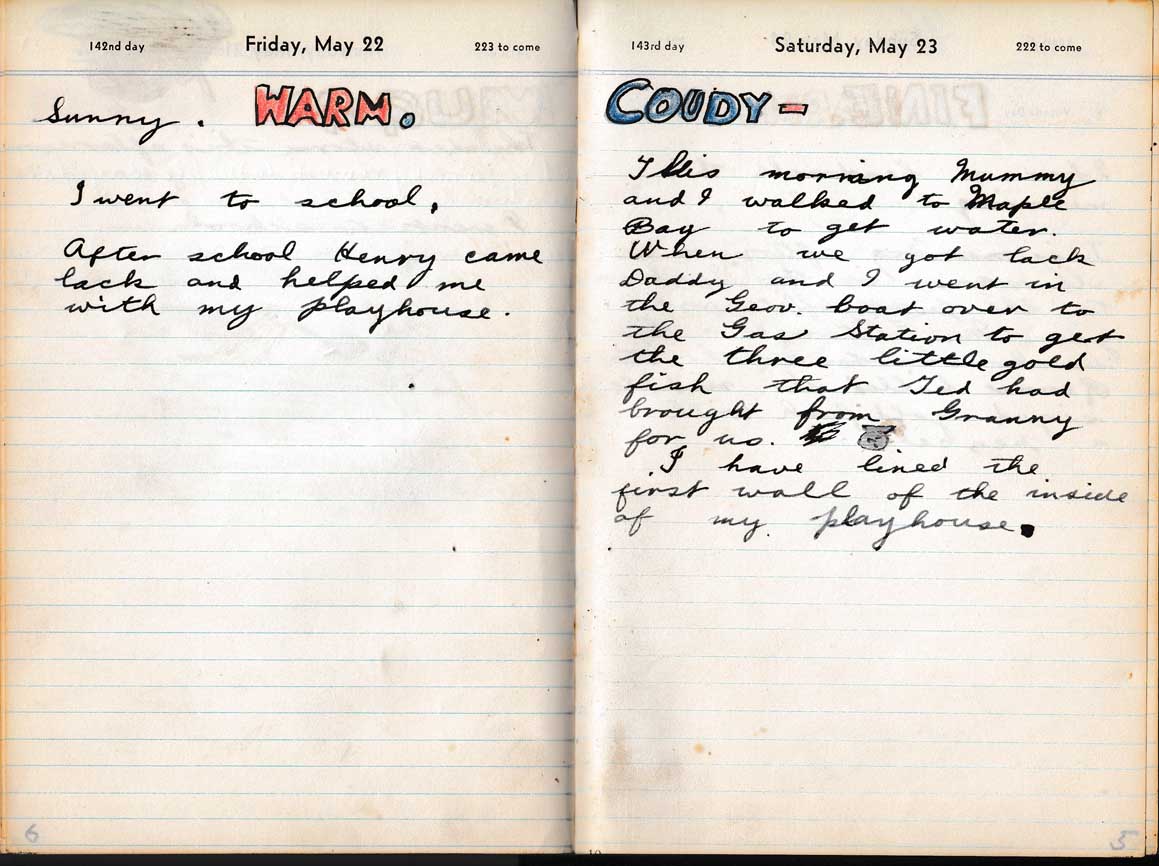 142nd day Friday, May 22 223 to come
Sunny. WARM.
I went to school.
After school Henry came
back and helped me
with my playhouse.
6
143rd day Saturday, May 23 222 to come
COUDY -
This morning Mummy
and I walked to Maple
Bay to get water.
When we got back
Daddy and I went in
the Geov. boat over to
the Gas Station to get
the three little gold
fish that Ted had
brought from Granny
for us.
I have lined the
first wall of the inside
of my playhouse.
5